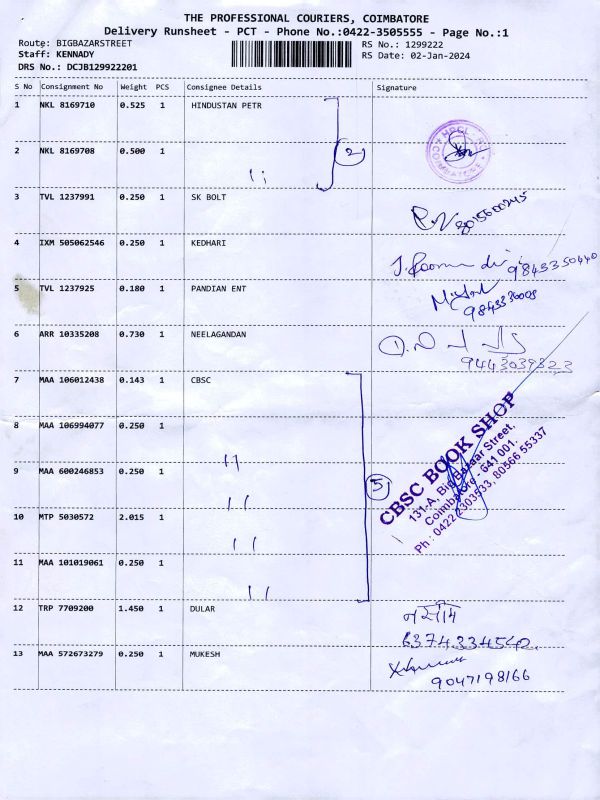 THE PROFESSIONAL COURIERS, COIMBATORE
Delivery Runsheet - PCT - Phone No.:0422-3505555 - Page No.:1
Route: BIGBAZARSTREET RS No.: 1299222
Staff: KENNADY RS Date: 02-Jan-2024
DRS No.: DCJB129922201
S No Consignment No Weight PCS Consignee Details Signature
1 NKL 8169710 0.525 1 HINDUSTAN PETR
2 NKL 8169708 0.500 1 11 2
3 TVL 1237991 0.250 1 SK BOLT
8015600245
4 IXM 505062546 0.250 1 KEDHARI
9843350440
5 TVL 1237925 0.180 1 PANDIAN ENT
9843336009
6 ARR 10335208 0.730 1 NEELAGANDAN
9443039823
7 MAA 106012438 0.143 1 CBSC
8 MAA 106994077 0.250 1 11
9 MAA 600246853 0.250 1 11 5
10 MTP 5030572 2.015 1 11
11 MAA 101019061 0.250 1 11
CBSC BOOK SHOP
131-A, Big Bazaar Street,
Coimbatore - 641 001.
Ph : 0422 2303533, 80566 55337
12 TRP 7709200 1.450 1 DULAR
नसीम
6374334542
13 MAA 572673279 0.250 1 MUKESH
9047198166